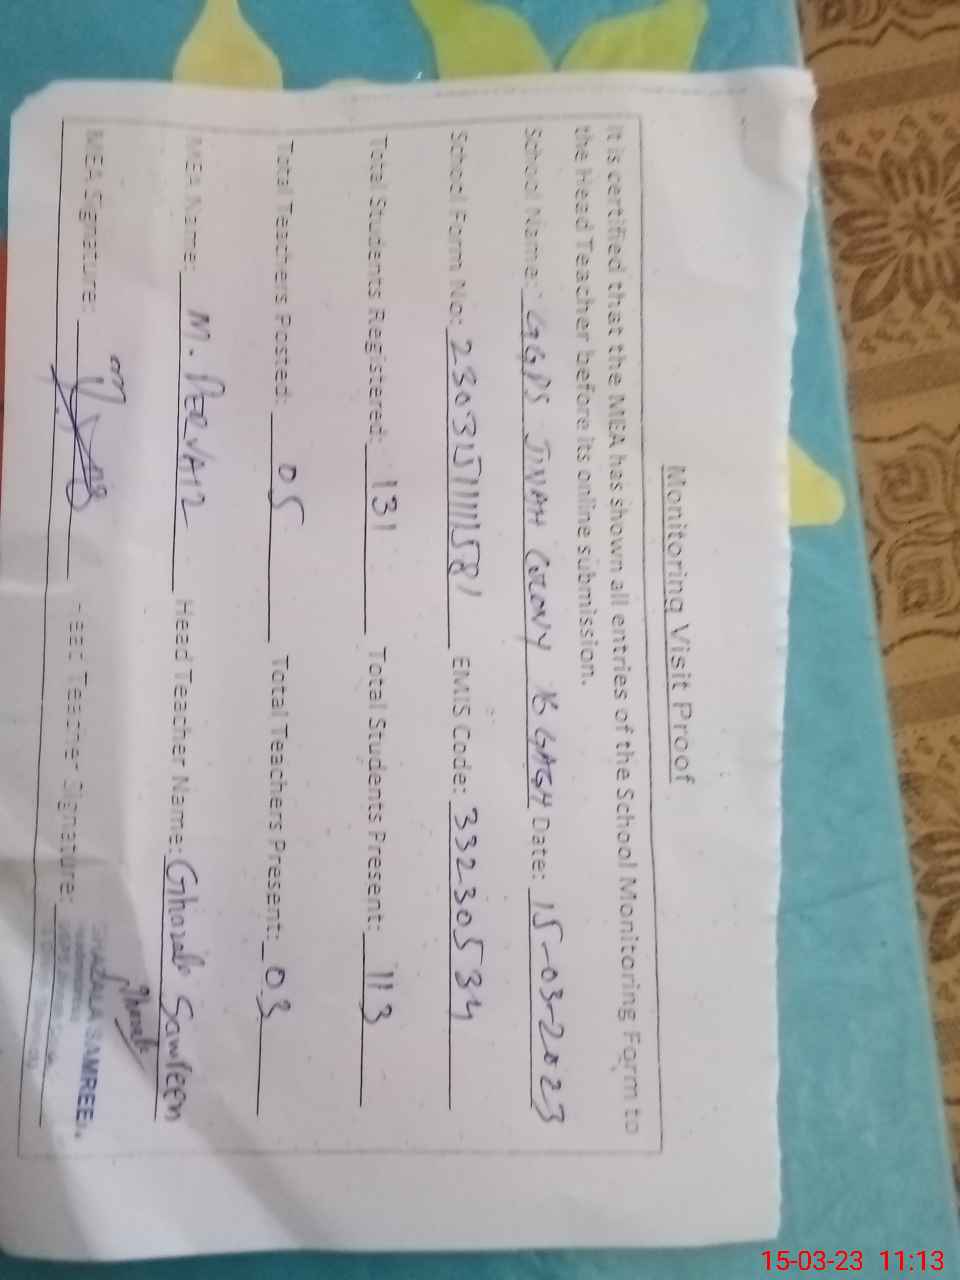 Monitoring Visit Proof
It is certified that the MEA has shown all entries of the School Monitoring Form to
the Head Teacher before its online submission.
School Name: GGPS JINAH COLONY Date: 15-03-2023
School Form No: EMIS Code: 33230534
Total Students Registered: 131 Total Students Present: 113
Total Teachers Posted: 05 Total Teachers Present: 03
MEA Name: M. PERVAIZ Head Teacher Name: Ghazala Samreen
MEA Signature: Head Teacher Signature:
GHAZALA SAMREEN
15-03-23 11:13